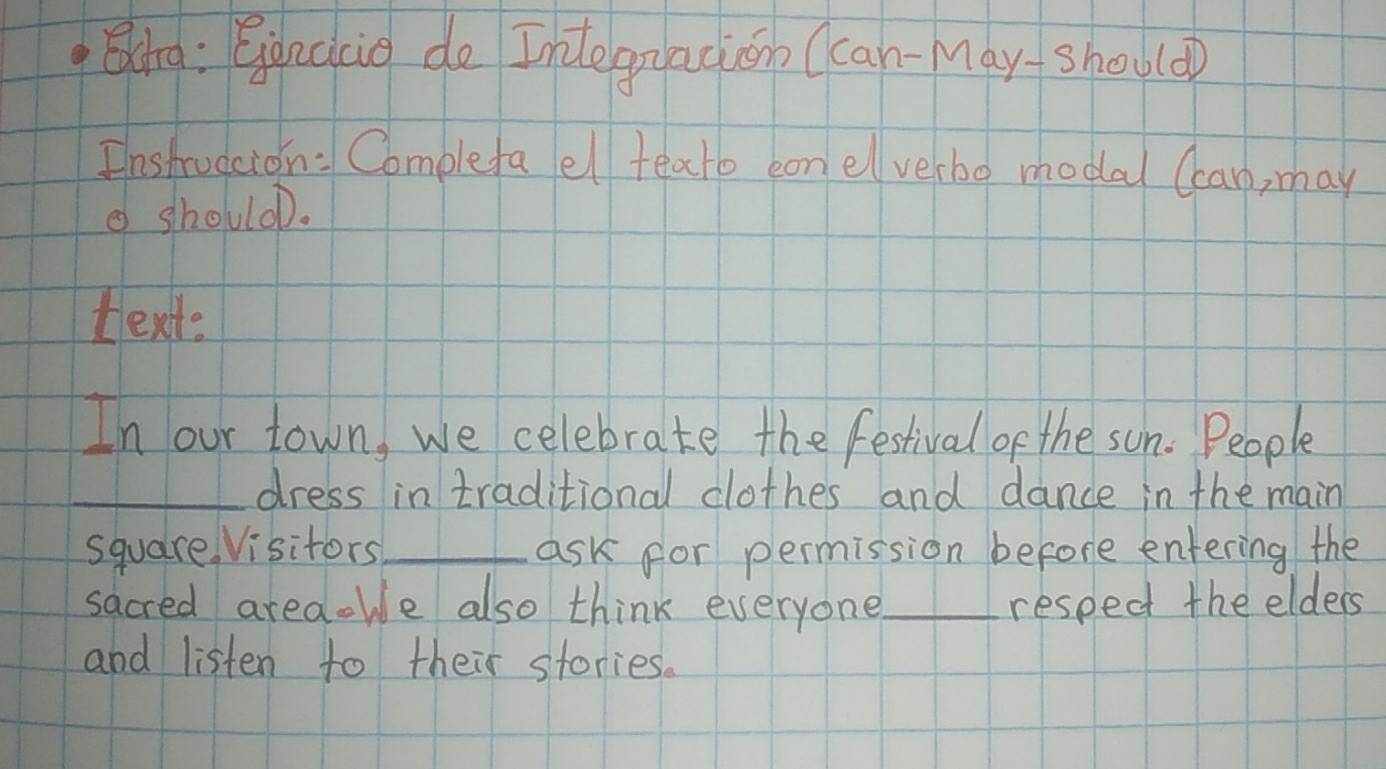 • Extra: Ejercicio de Integración (Can-May-Should)
Instrucción: Completa el texto con el verbo modal (can, may
o should).
text:
In our town, we celebrate the festival of the sun. People
______ dress in traditional clothes and dance in the main
square. Visitors ______ ask for permission before entering the
sacred area. We also think everyone ______ respect the elders
and listen to their stories.